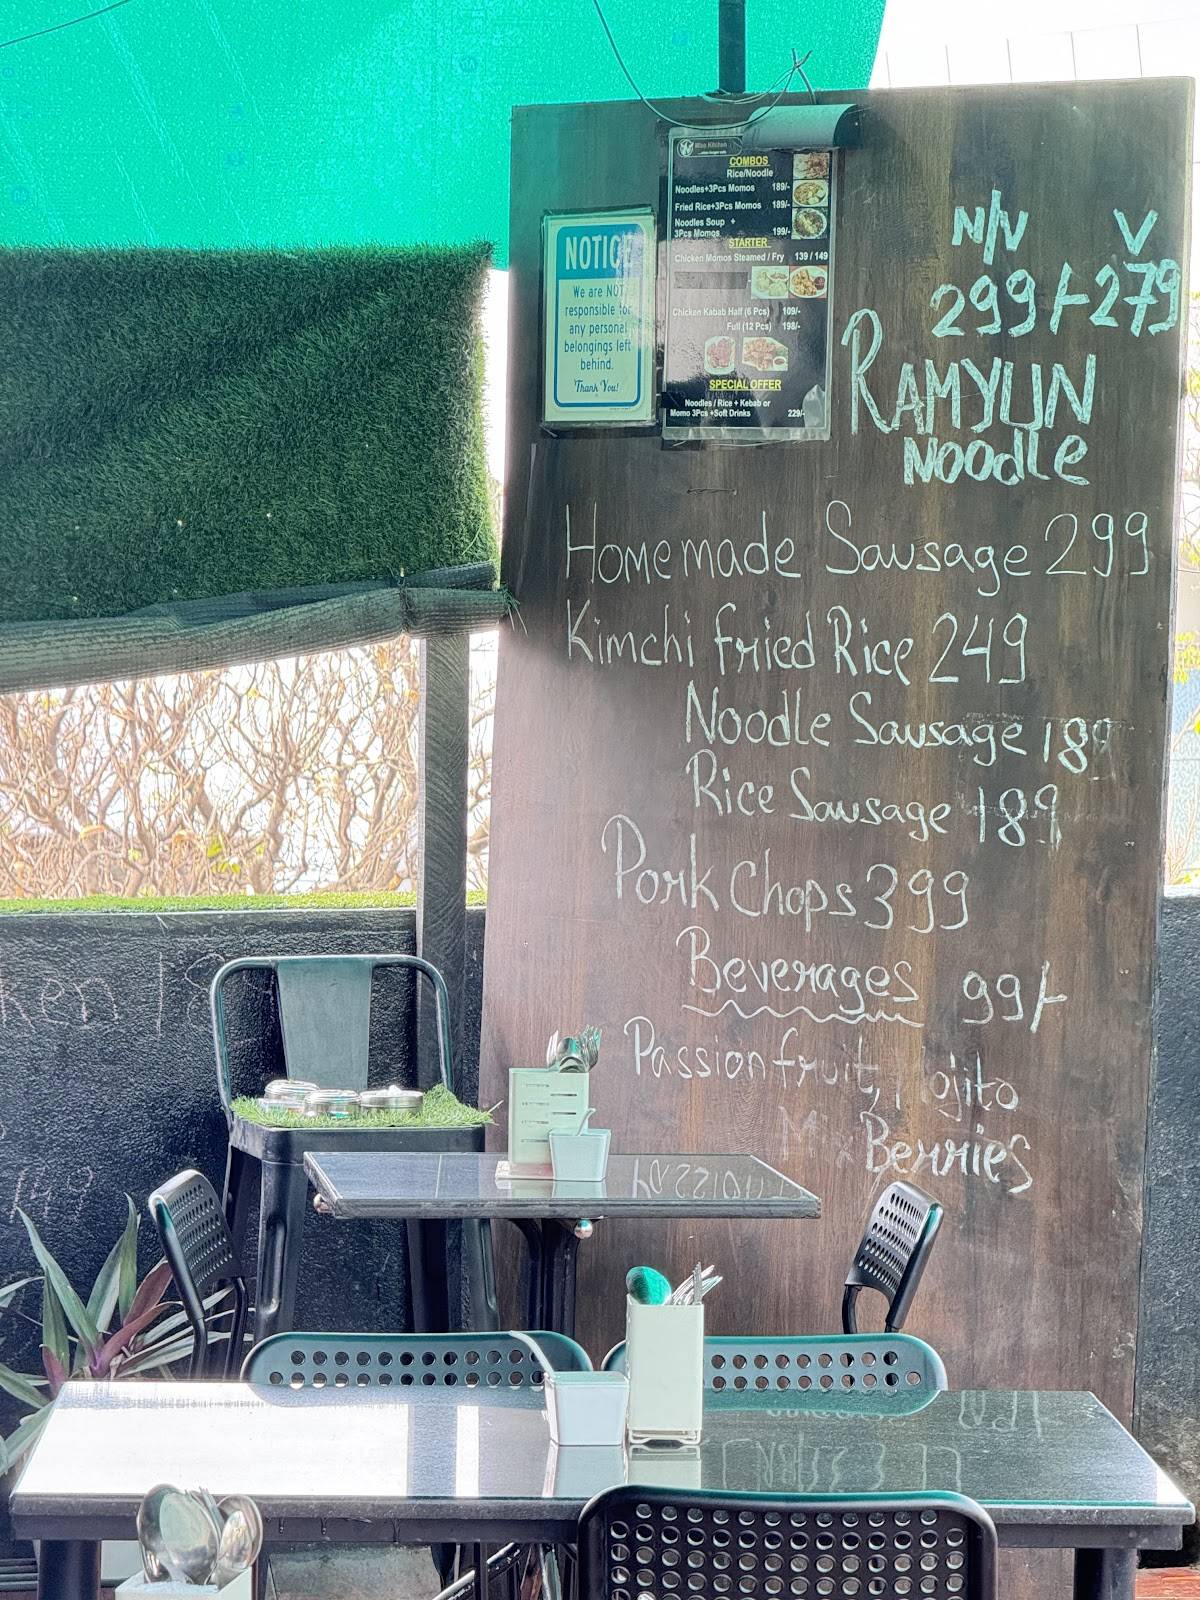 NOTICE
We are NOT
responsible for
any personal
belongings left
behind.
Thank You!
Kitchen
COMBOS
Rice/Noodle
Noodles+3Pcs Momos 189/-
Fried Rice+3Pcs Momos 189/-
Noodles Soup +
3Pcs Momos 199/-
STARTER
Chicken Momos Steamed / Fry 139 / 149
Chicken Kabab Half (6 Pcs) 109/-
Full (12 Pcs) 198/-
SPECIAL OFFER
Noodles / Rice + Kebab or
Momo 3Pcs +Soft Drinks 229/-
N/V V
299/- 279
RAMYUN
Noodle
Homemade Sausage 299
Kimchi fried Rice 249
Noodle Sausage 189
Rice Sausage 189
Pork Chops 399
Beverages 99/-
Passion fruit, ojito
Mix Berries
ken 18